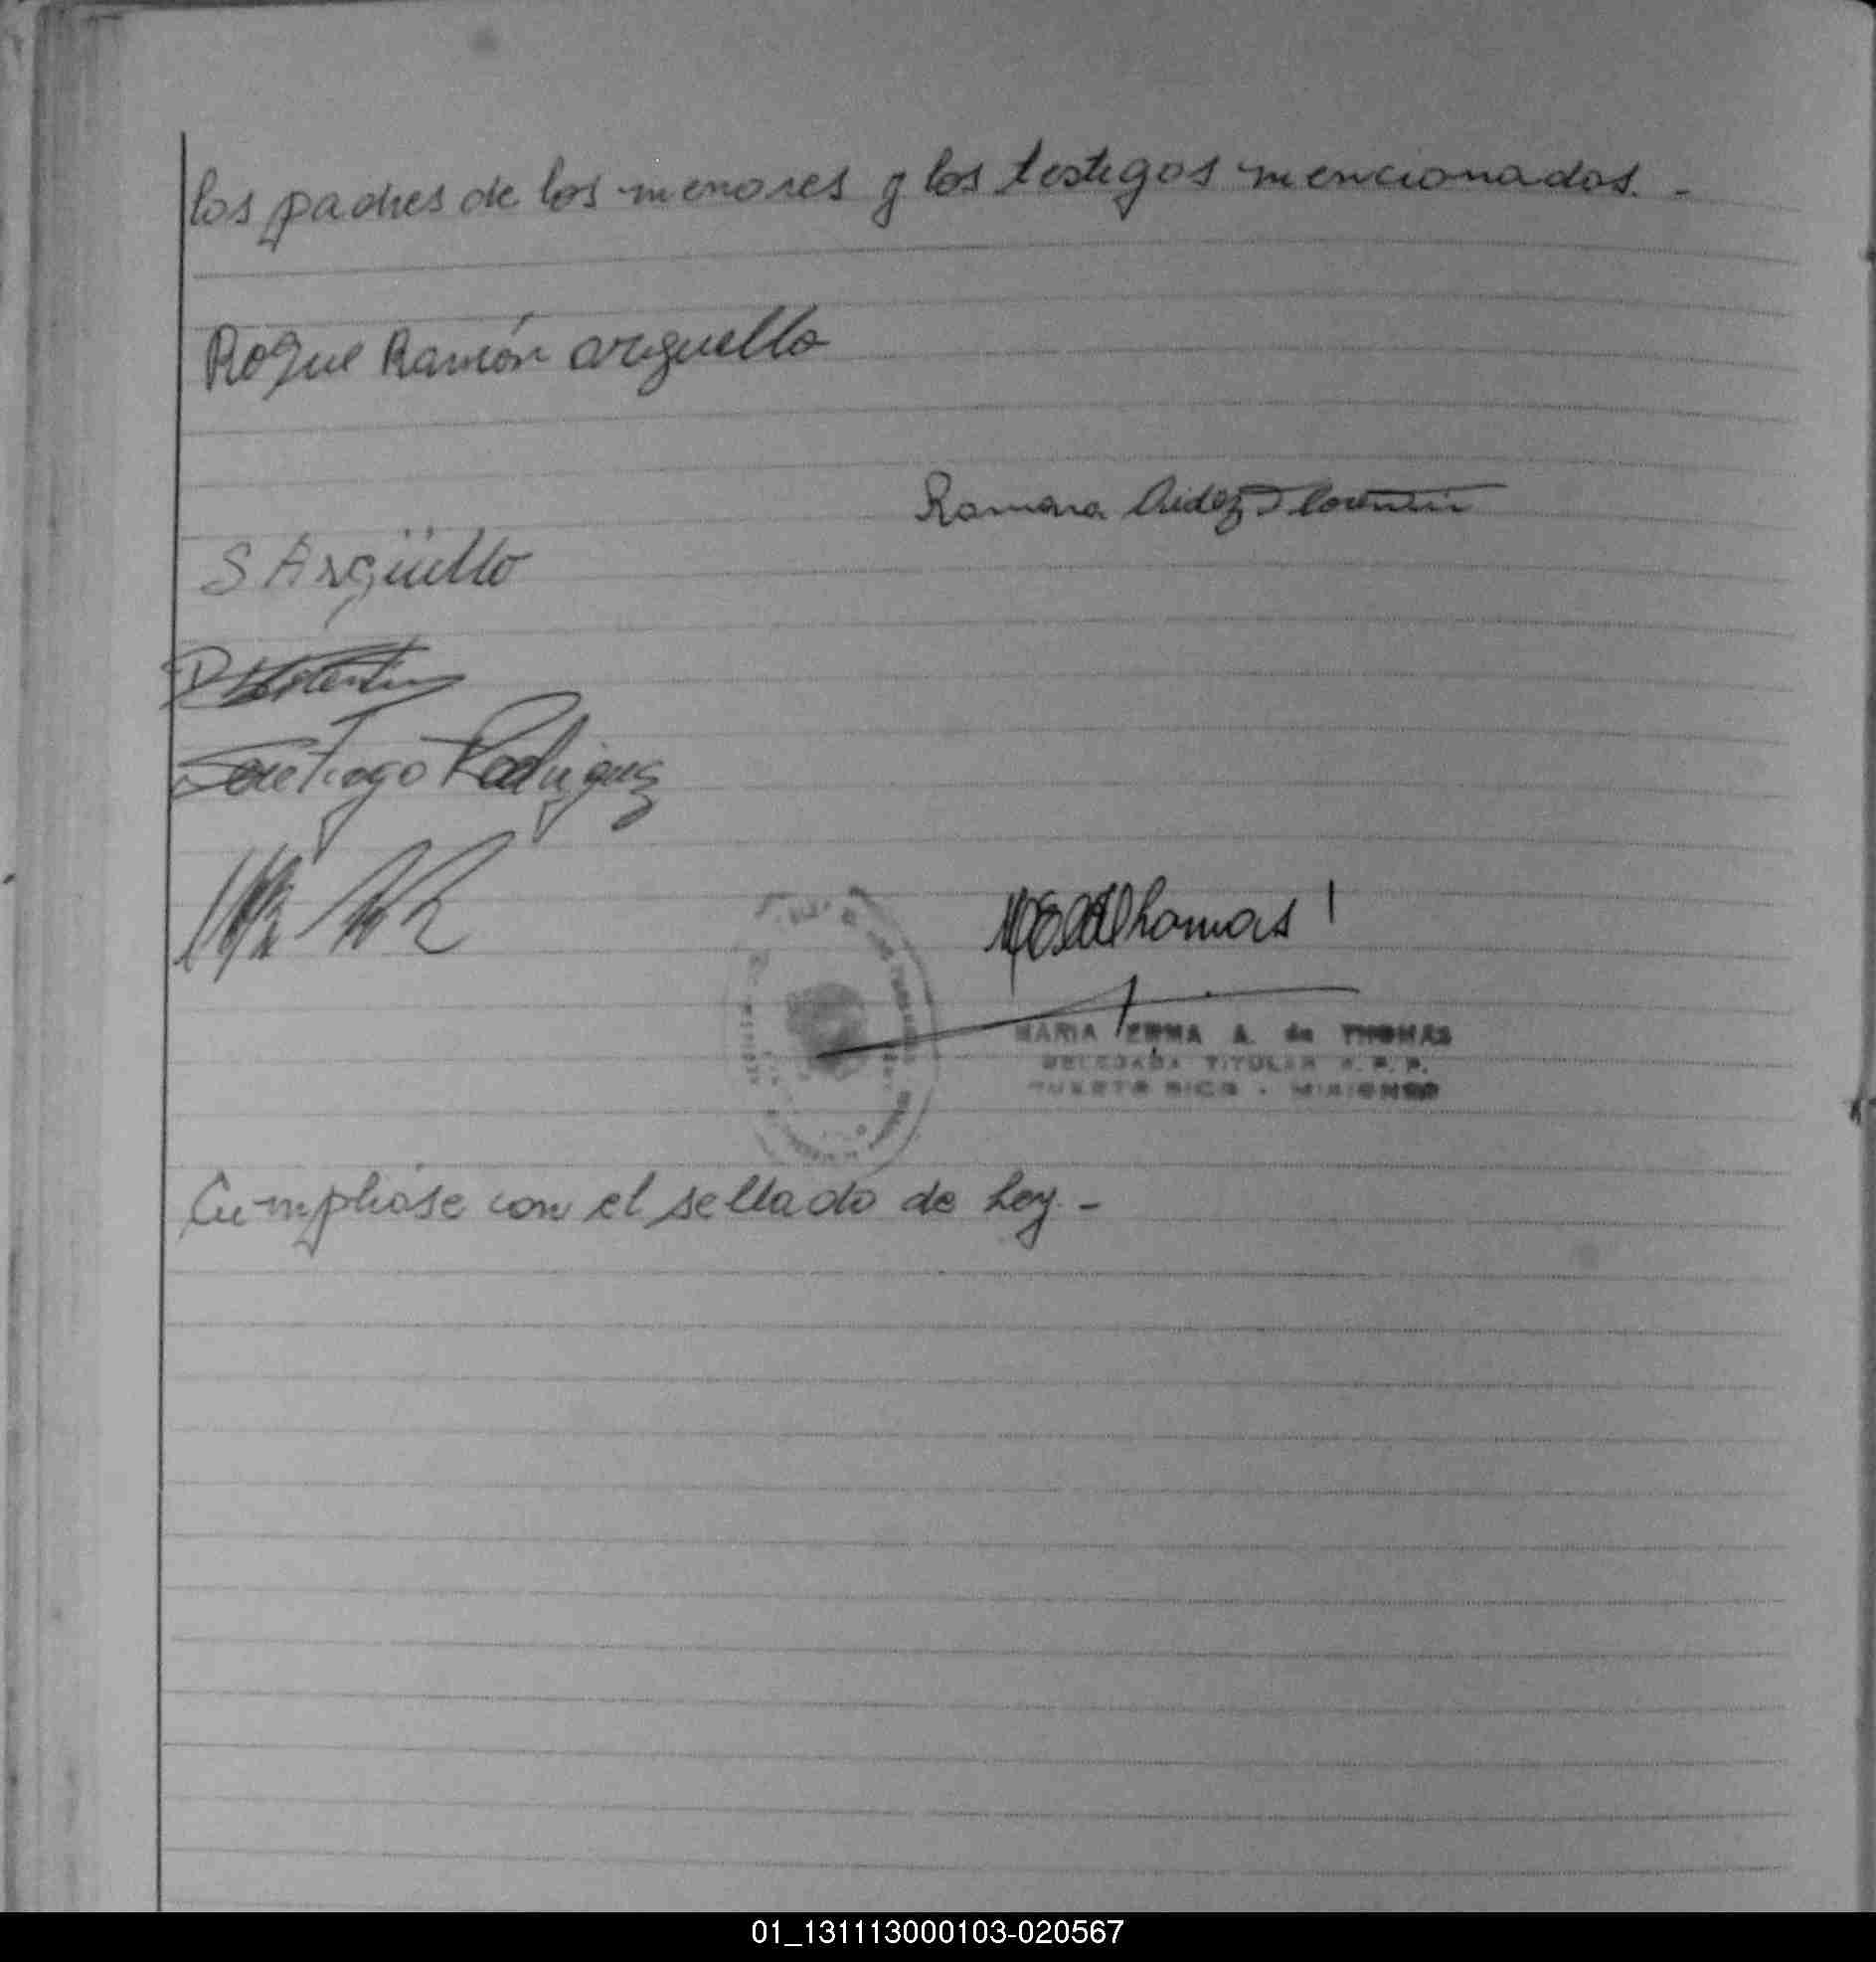 los padres de los menores y los testigos mencionados. -
Roque Ramón arguello
Ramona
S Argüello
Santiago Rodriguez
Thomas
MARIA IRMA A. de THOMAS
DELEGADA TITULAR R. P. P.
PUERTO RICO - MISIONES
Cumpliose con el sellado de Ley. -
01_131113000103-020567